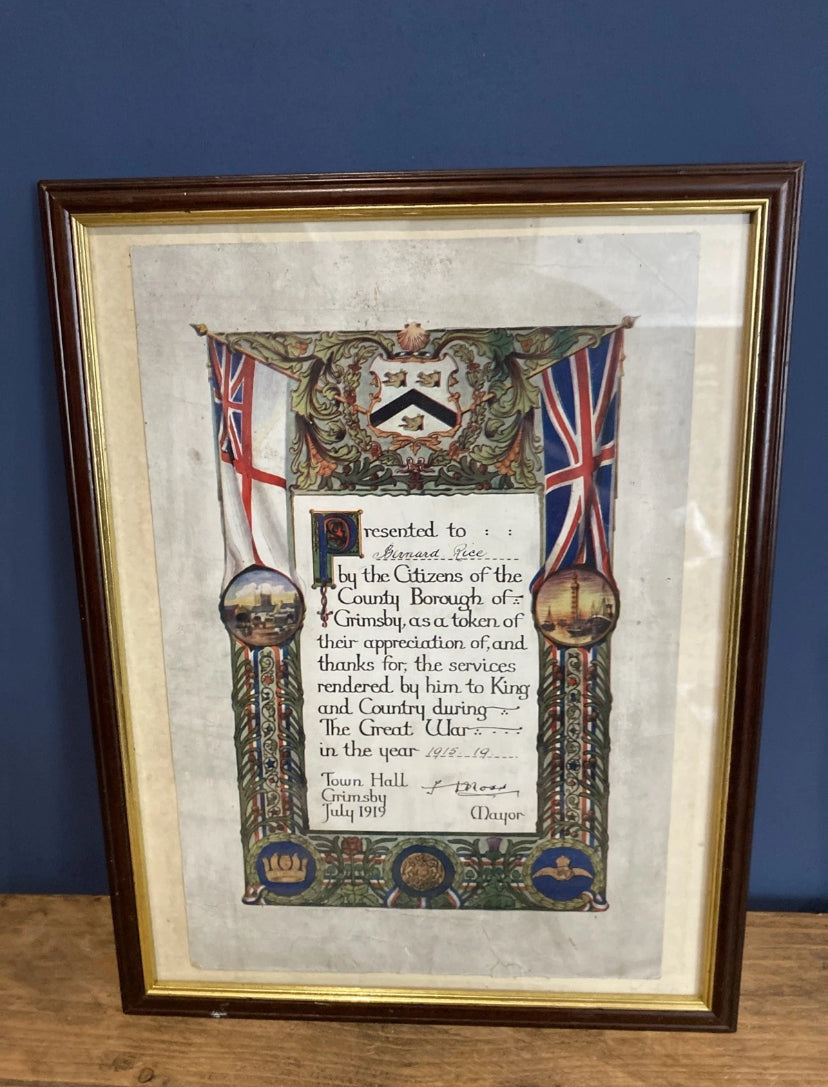 Presented to : :
Bernard Rice
by the Citizens of the
County Borough of
Grimsby, as a token of
their appreciation of, and
thanks for, the services
rendered by him to King
and Country during
The Great War
in the year 1915 19
Town Hall
Grimsby
July 1919
Moss
Mayor